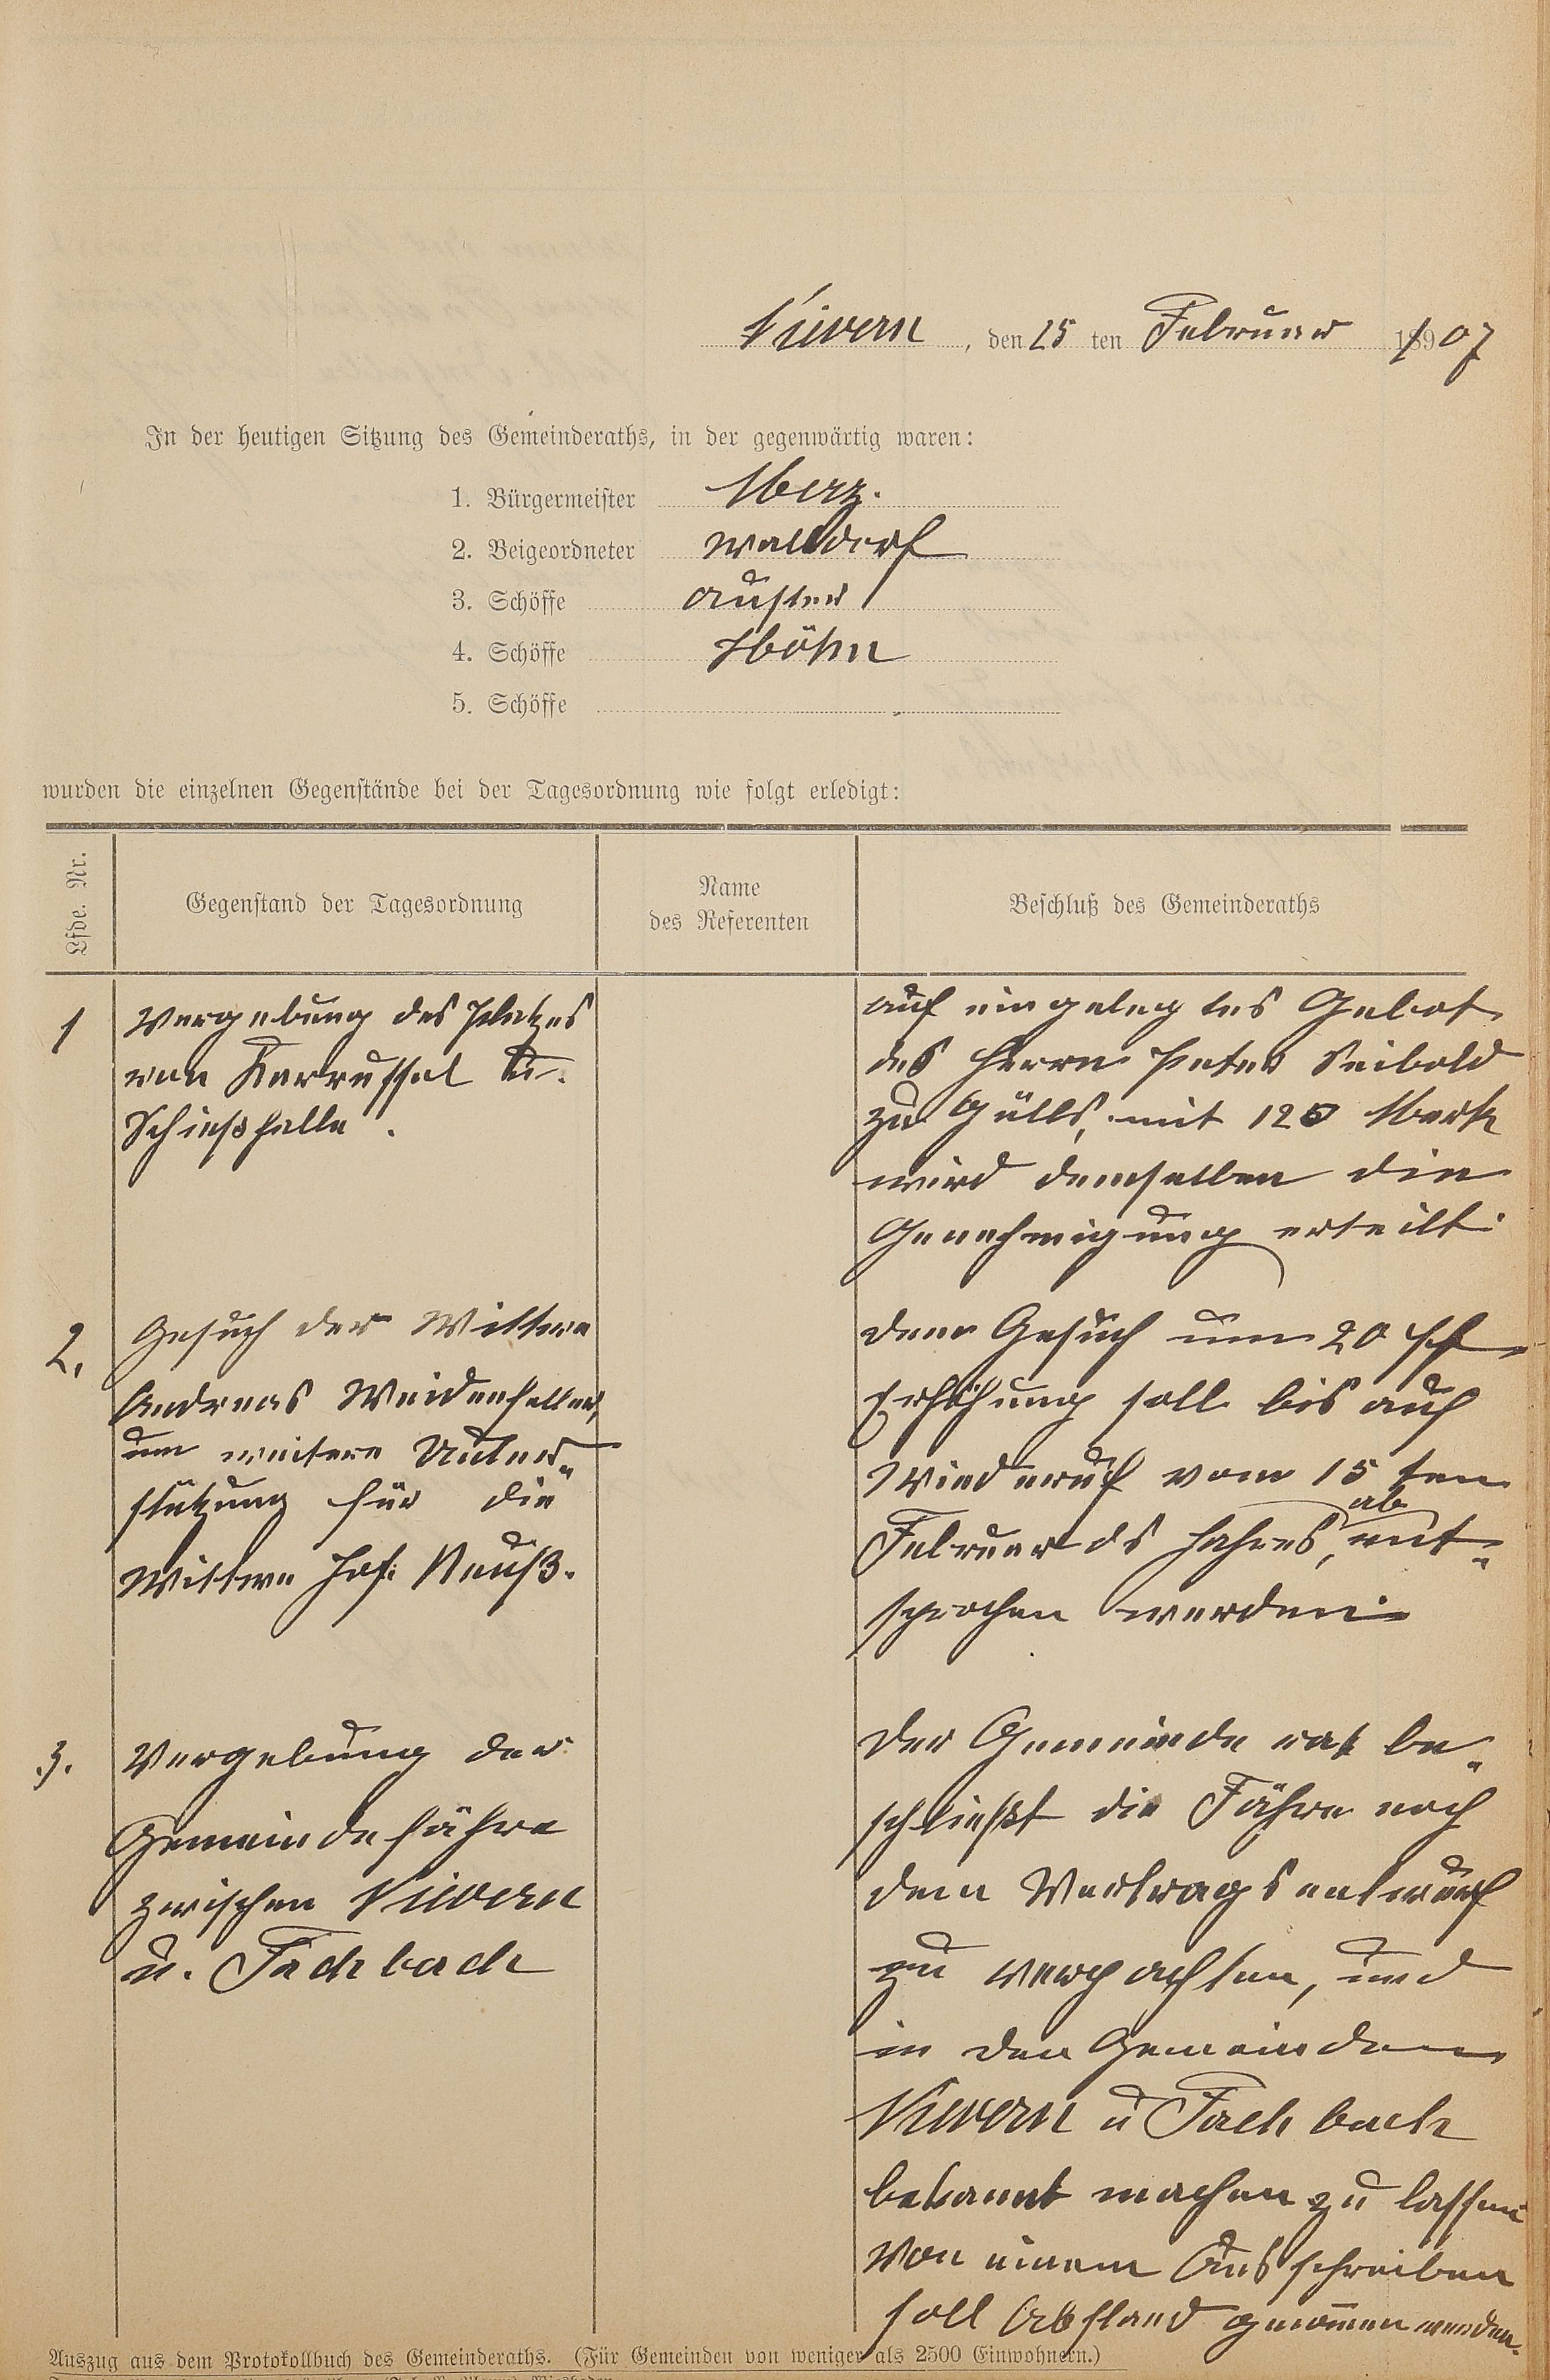 Nievern, den 25 ten Februar 1907
In der heutigen Sitzung des Gemeinderaths, in der gegenwärtig waren:
1. Bürgermeister Merz.
2. Beigeordneter Walldorf
3. Schöffe Auster
4. Schöffe Höhn
5. Schöffe
wurden die einzelnen Gegenstände bei der Tagesordnung wie folgt erledigt:
Lfde. Nr.
Gegenstand der Tagesordnung
Name
des Referenten
Beschluß des Gemeinderaths
1
Vergebung des Platzes
von Karrussel u.
Schießhalle.
auf eingelegtes Gebot
des Herrn Peter Seibold
zu Gülls, mit 120 Mark
wird demselben die
Genehmigung erteilt.
2.
Gesuch der Wittwe
Andreas Weidenfeller,
um weitere Unter-
stützung für die
Wittwe Jos. Neuß.
dem Gesuch um 20 Pf
Erhöhung soll bis auf
Wiederruf vom 15 ten
Februar ds Jahres, ab ent-
sprochen werden.
3.
Vergebung der
Gemeindefähre
zwischen Nievern
u. Fachbach
Der Gemeinde rat be-
schließt die Fähre nach
dem Vertragsentwurf
zu verpachten, und
in den Gemeinden
Nievern u Fachbach
bekannt machen zu lassen
Von einem Ausschreiben
soll Abstand genommen werden.
Auszug aus dem Protokollbuch des Gemeinderaths. (Für Gemeinden von weniger als 2500 Einwohnern.)